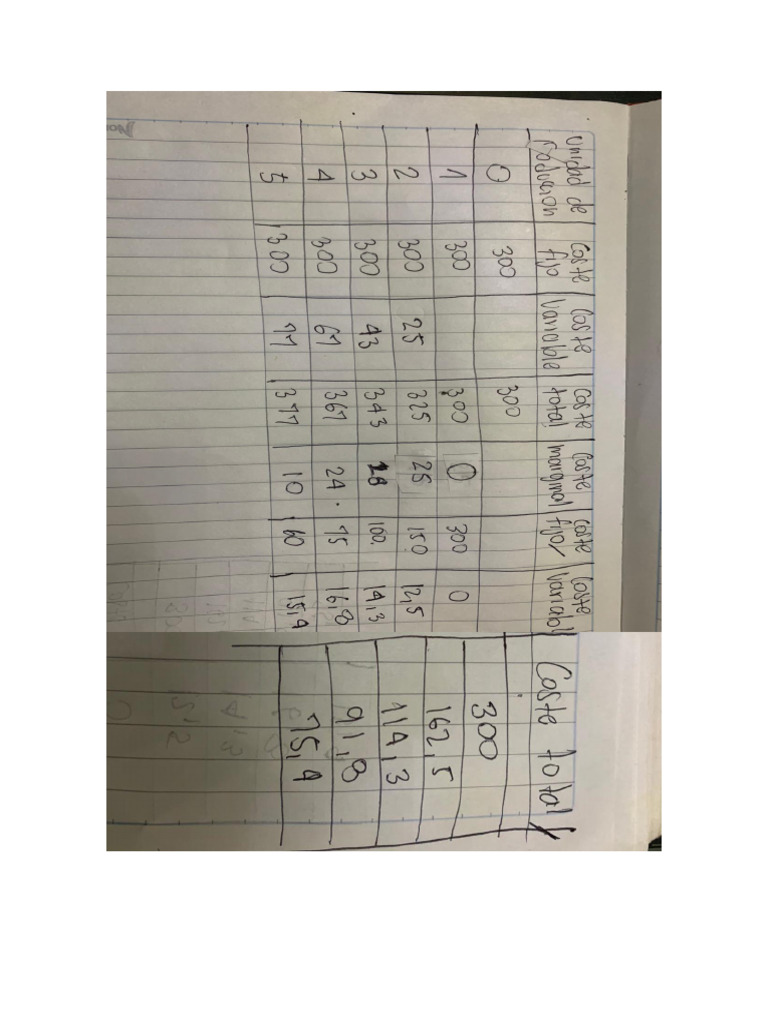 Unidad de Producion | Coste fijo | Coste variable | Coste total | Coste marginal | Coste fijo/ | Coste variabl | Coste total/
0 | 300 | | 300 | | | |
1 | 300 | | 300 | 0 | 300 | 0 | 300
2 | 300 | 25 | 325 | 25 | 150 | 12,5 | 162,5
3 | 300 | 43 | 343 | 18 | 100. | 14,3 | 114,3
4 | 300 | 67 | 367 | 24. | 75 | 16,8 | 91,8
5 | 300 | 77 | 377 | 10 | 60 | 15,4 | 75,4